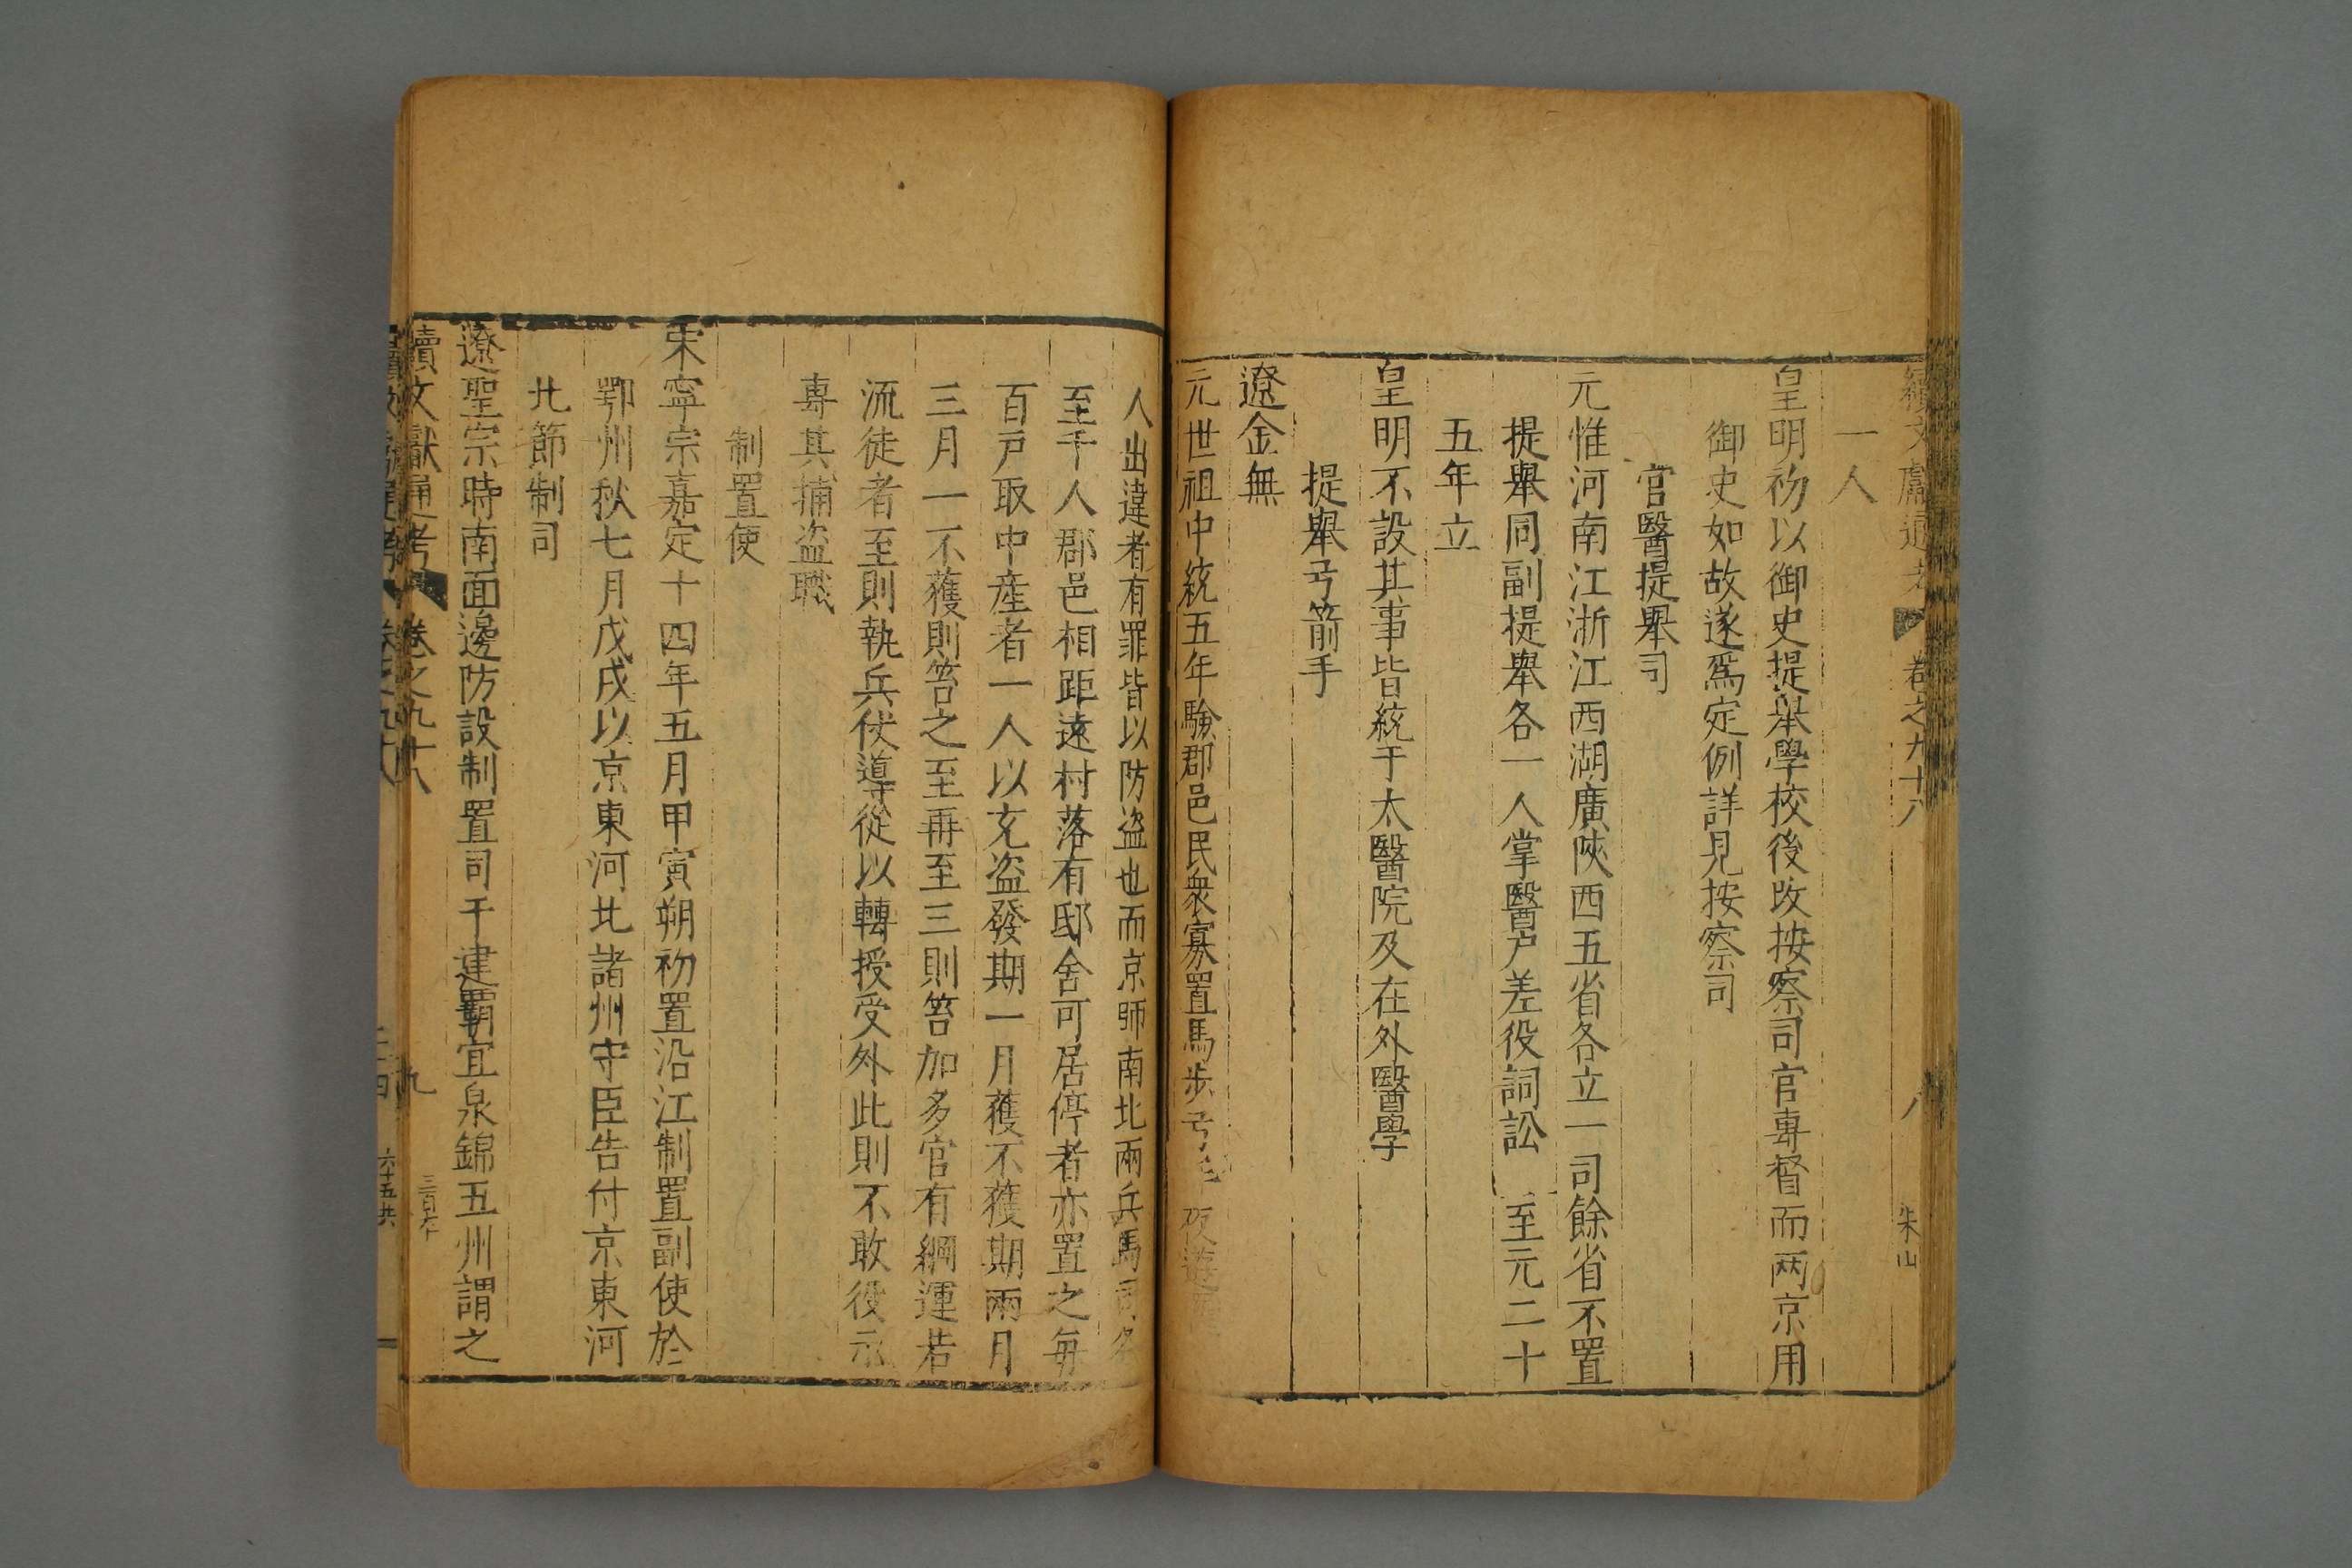 續文獻通考 卷之九十八 八 朱山
一人
皇明初以御史提举學校後改按察司官專督而两京用
御史如故遂爲定例詳見按察司
官醫提舉司
元惟河南江浙江西湖廣陜西五省各立一司餘省不置
提舉同副提舉各一人掌醫户差役詞訟 至元二十
五年立
皇明不設其事皆統于太醫院及在外醫學
提舉弓箭手
遼金無
元世祖中統五年驗郡邑民衆寡置馬步弓 夜遊
人出違者有罪皆以防盗也而京師南北兩兵馬司各
至千人郡邑相距遠村落有邸舍可居停者亦置之每
百戸取中産者一人以充盗發期一月獲不獲期兩月
三月一不獲則笞之至再至三則笞加多官有綱運若
流徒者至則執兵仗導從以轉授受外此則不敢役示
專其捕盗職
制置使
宋寧宗嘉定十四年五月甲寅朔初置沿江制置副使於
鄂州秋七月戊戌以京東河北諸州守臣告付京東河
北節制司
遼聖宗時南面邊防設制置司于建霸宜泉錦五州謂之
續文獻通考 卷之九十八 九